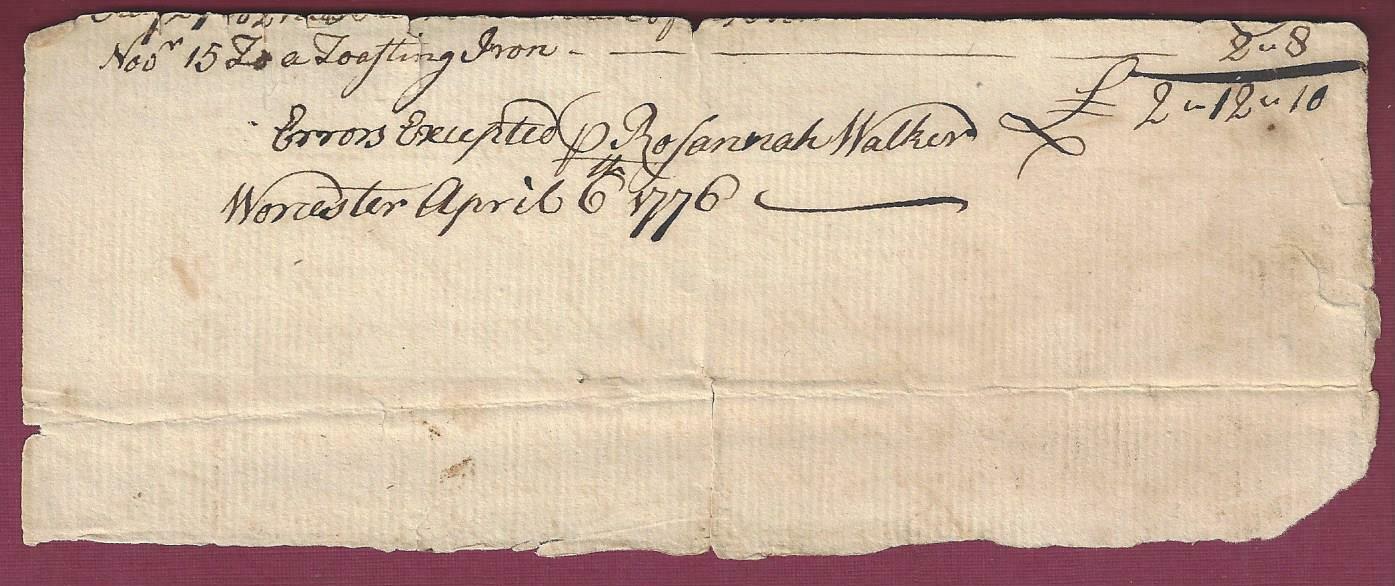 Novr 15 To a Toasting Iron - — — — 2 " 8
£ 2 " 12 " 10
Errors Excepted p Rosannah Walker
Worcester April 6th 1776